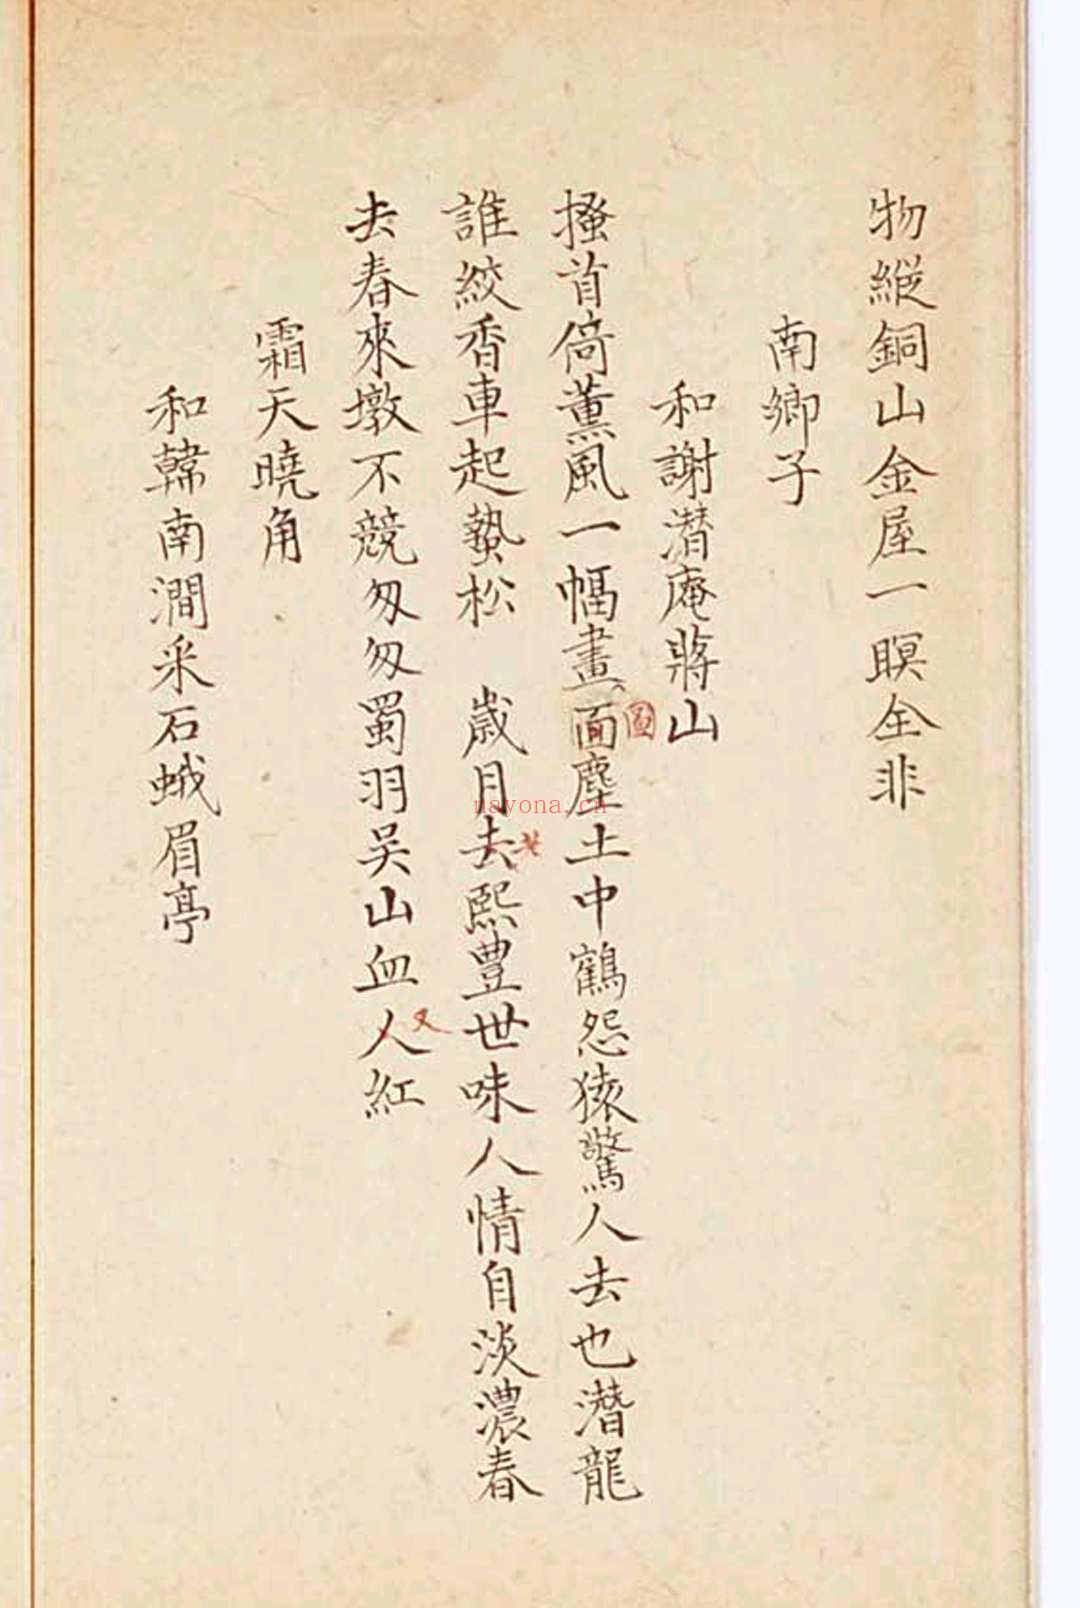 物縱銅山金屋一瞑全非
南鄉子
和謝潛庵蔣山
圖
搔首倚薰風一幅畫面塵土中鶴怨猿驚人去也潛龍
誰絞香車起蟄松　歲月去熙豐世味人情自淡濃春
又
去春來墩不競匆匆蜀羽吴山血人紅
霜天曉角
和韓南澗采石蛾眉亭
nayona.cn